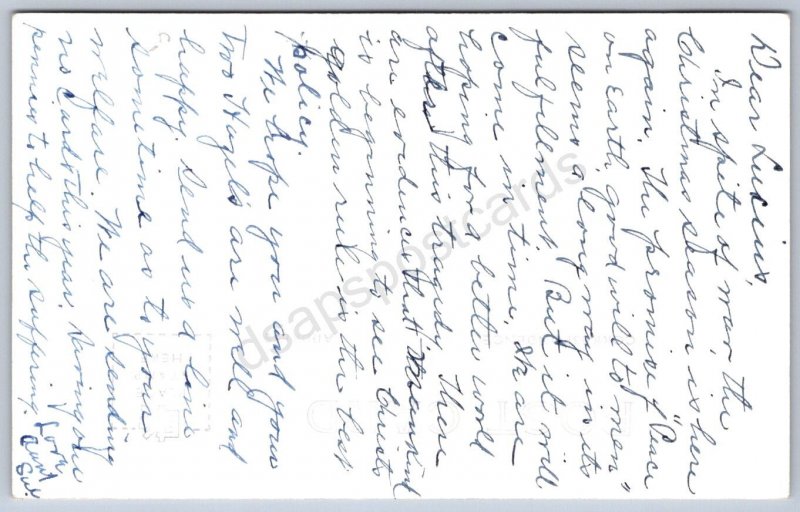 Dear Lucius,
In spite of war, the
Christmas season is here
again. The promise of "Peace
on Earth, good will to men"
seems a long way in its
fulfillment. But it will
come in time. We are
hoping for a better world
after this tragedy. There
are evidences that mankind
is beginning to see Christs
golden rule is the best
policy.
We hope you and your
Two Hazels are well and
happy. Send us a line
sometime as to your
welfare. We are sending
no cards this year. Saving our
pennies to help the suffering.
Love,
Aunt
Sue
dsapspostcards
POST CARD